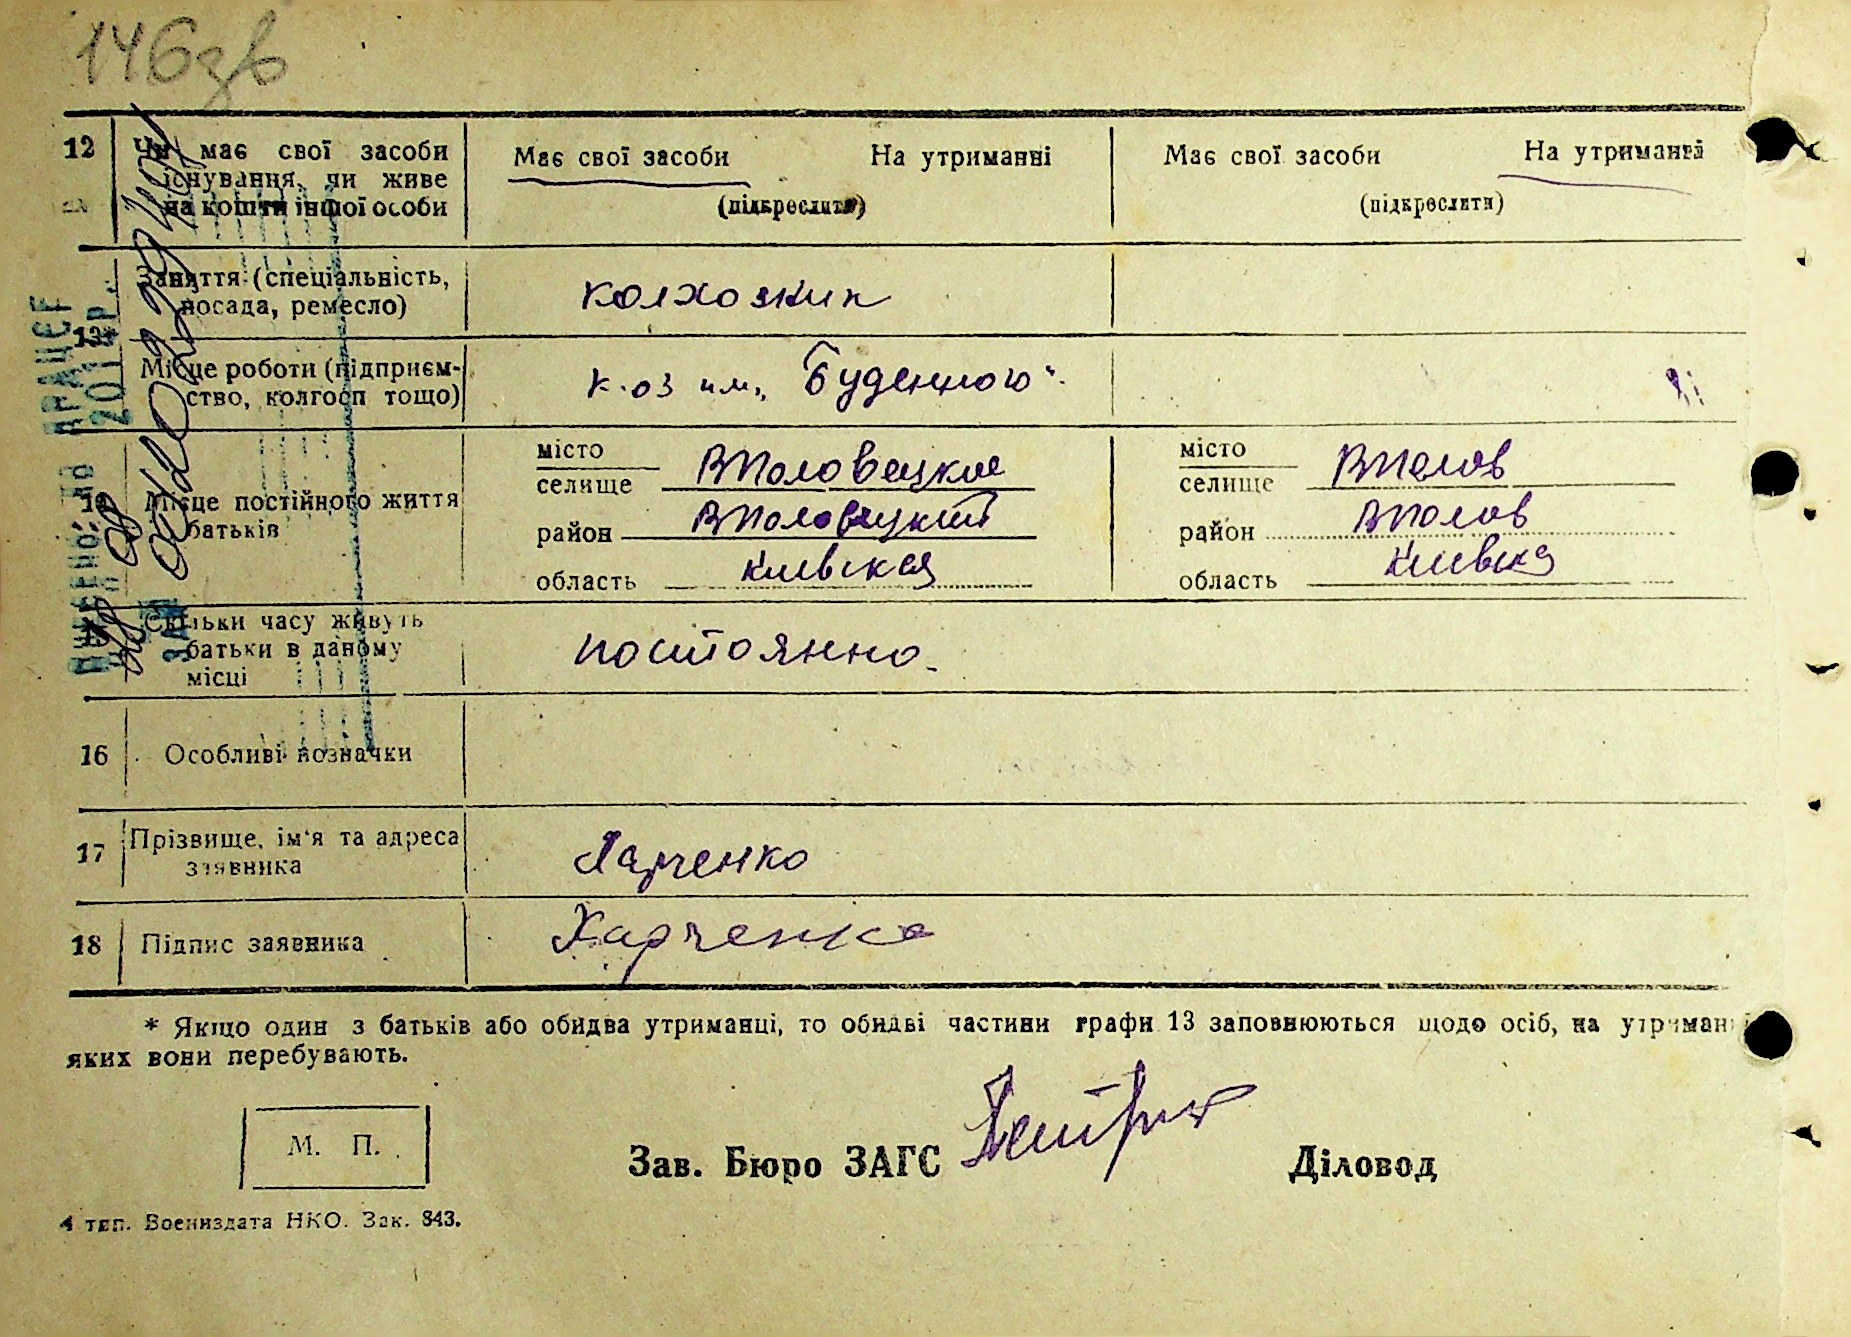 146зв
12 Чи має свої засоби існування, чи живе на кошти іншої особи
Має свої засоби На утриманні
(підкреслити)
Має свої засоби На утриманні
(підкреслити)
13*
Заняття (спеціальність, посада, ремесло)
колхозник
Місце роботи (підприєм-
ство, колгосп тощо)
к-оз им. Буденного"
Місце постійного життя батьків
місто
селище ВПоловецкое
район ВПоловецкий
область Киевская
місто
селище ВПолов
район ВПолов
область Киевска
Скільки часу живуть батьки в даному місці
постоянно.
16 Особливі позначки
17 Прізвище, ім'я та адреса заявника
Харченко
18 Підпис заявника
Харченко
* Якщо один з батьків або обидва утриманці, то обидві частини графи 13 заповнюються щодо осіб, на утриманні
яких вони перебувають.
М. П.
Зав. Бюро ЗАГС
Діловод
4 тип. Воениздата НКО. Зак. 843.